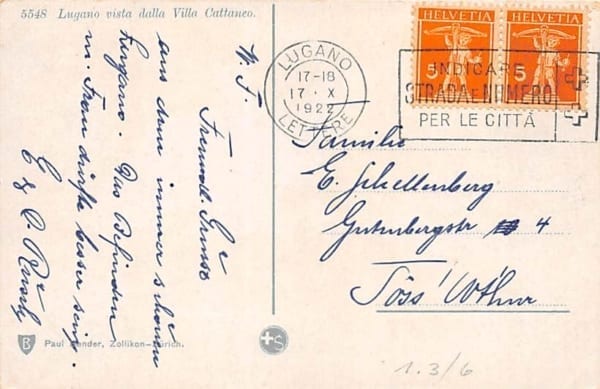 5548 Lugano vista dalla Villa Cattaneo.
W. F.
Freundl. Grüsse
aus dem immer schönen
Lugano. Das Befinden
m. Frau dürfte besser sein.
E & L.
HELVETIA HELVETIA
5 5
LUGANO
17-18
17 · X
1922
LETTERE
INDICARE
STRADA E NUMERO
PER LE CITTÀ
Familie
E. Schellenberg
Gutenbergstr 4
Töss / W'thur
B
Paul Bender, Zollikon-Zürich.
S
1.3/6